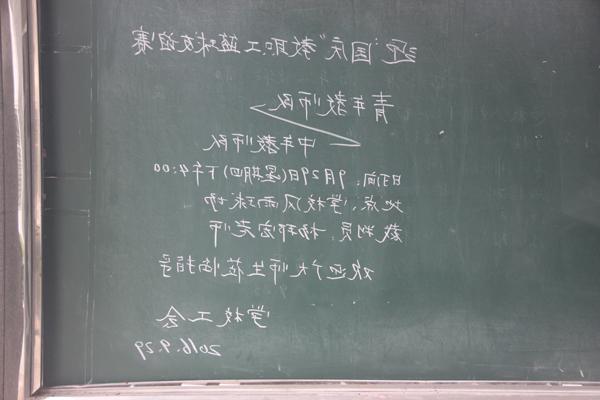 迎"国庆"教职工篮球友谊赛
青年教师队
中年教师队
时间:9月29日(星期四)下午4:00
地点:学校风雨球场
裁判员:杨邦宏老师
欢迎广大师生莅临指导
学校工会
2016.9.29